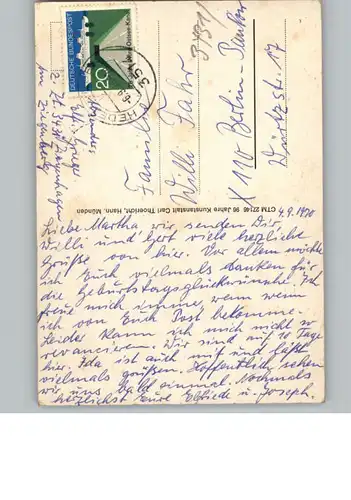 DEUTSCHE BUNDESPOST
20
HEDE
351
Familie
Willi Fahr
X 110 Berlin-Pankow
17
CTM 22146 96 Jahre Kunstanstalt Carl Thoericht, Hann. Münden
4.9.1970
Liebe Martha, wir senden Dir,
Willi und Gert viele herzliche
Grüße von hier. Vor allem möchte
ich Euch vielmals danken für
die Geburtstagsglückwünsche. Ich
freue mich immer, wenn
ich von Euch Post bekomme.
Leider kann ich mich nicht so
revancieren. Wir sind auf 10 Tage
hier. Ida ist auch mit und läßt
vielmals grüßen. Hoffentlich sehen
wir uns bald einmal. Nochmals
herzlichst Eure Elfriede u. Joseph.